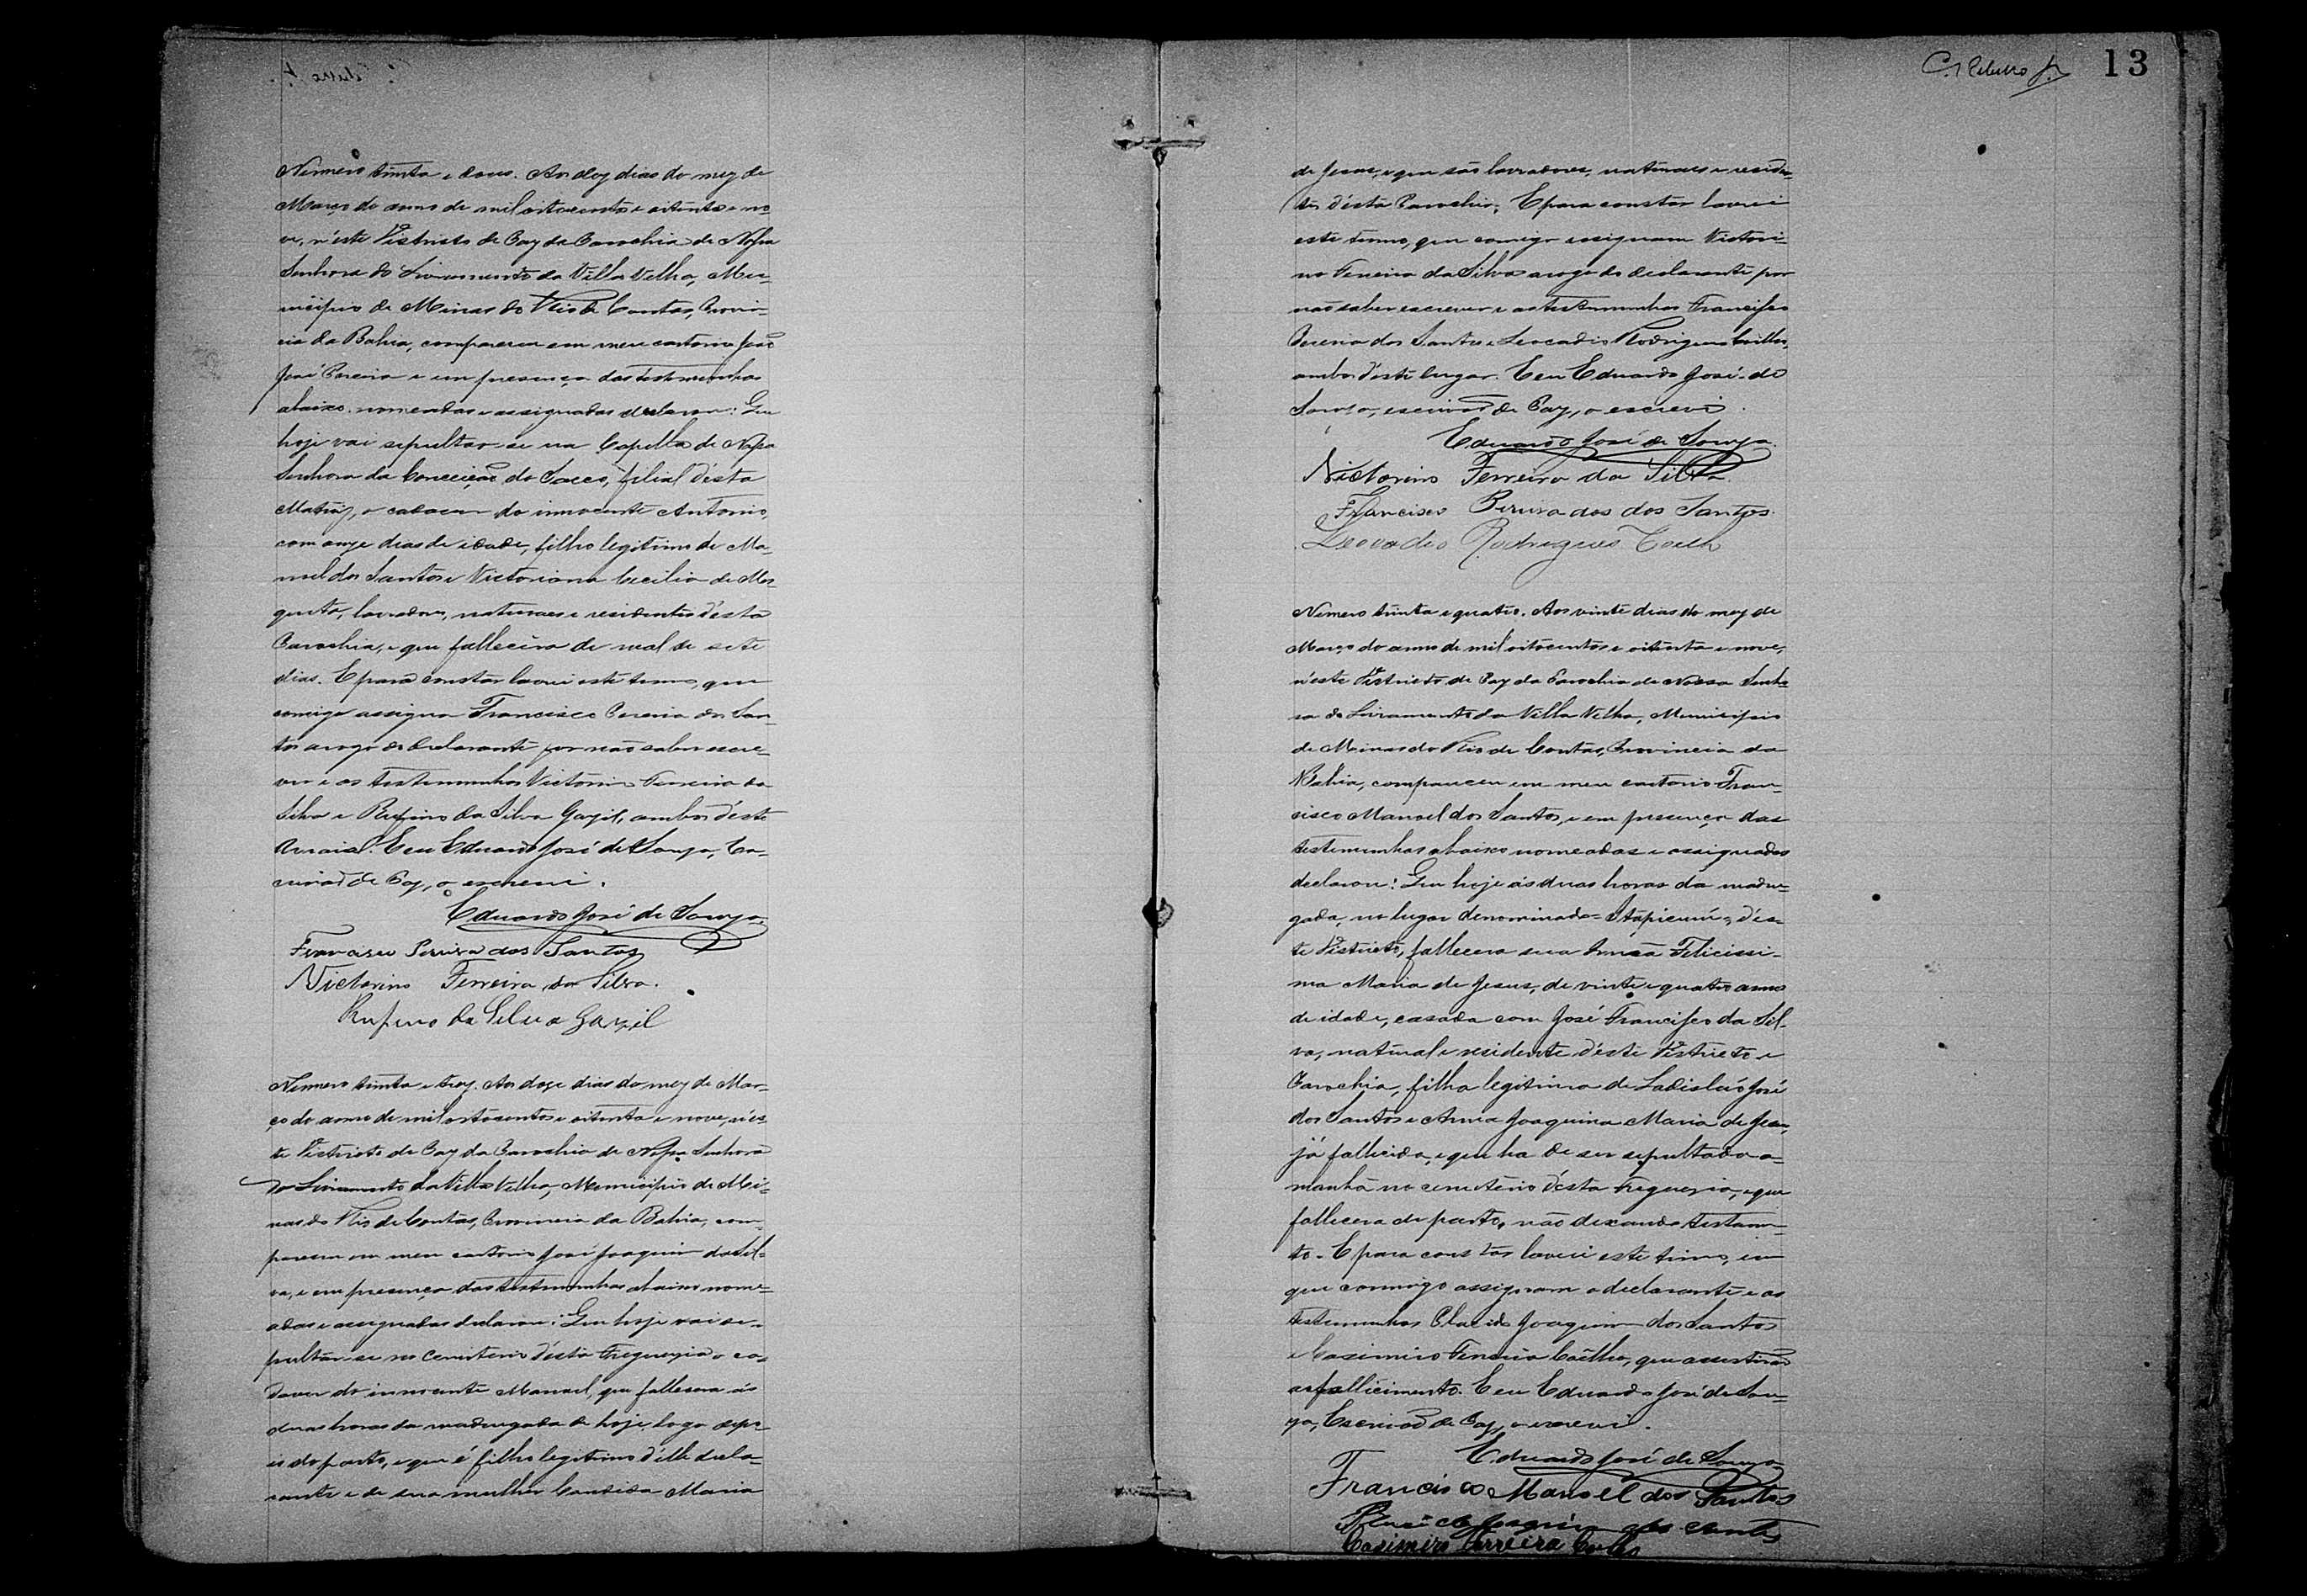 Numero trinta e dous. Aos dez dias do mez de
Março do anno de mil oitocentos e oitenta e no-
ve, n'este Districto de Paz da Parochia de Nossa
Senhora do Livramento da Villa Velha, Mu-
nicipio de Minas do Rio de Contas, Provin-
cia da Bahia, compareceu em meu cartorio José
José Pereira e em presença das testemunhas
abaixo nomeadas e assignadas declarou: Que
hoje vai sepultar-se na Capella de Nossa
Senhora da Conceição do Sacco, filial d'esta
Matriz, o cadaver do innocente Antonio,
com onze dias de idade, filho legitimo de Ma-
nuel dos Santos e Victoriana Cecilia de Mes-
quita, lavradores, naturaes e residentes d'esta
Parochia, e que fallecêra de mal de sete
dias. E para constar lavrei este termo, que
comigo assigna Francisco Pereira dos San-
tos a rogo do declarante por não saber escre-
ver e as testemunhas Victorino Ferreira da
Silva e Rufino da Silva Gazil, ambos d'este
Arraial. E eu Eduardo José de Souza, Es-
crivão de Paz, o escrevi.
Eduardo José de Souza
Francisco Pereira dos Santos
Victorino Ferreira da Silva.
Rufino da Silva Gazil
Numero trinta e trez. Aos doze dias do mez de Mar-
ço do anno de mil oitocentos e oitenta e nove, n'es-
te Districto de Paz da Parochia de Nossa Senhora
do Livramento da Villa Velha, Municipio de Mi-
nas do Rio de Contas, Provincia da Bahia, com-
pareceu em meu cartorio José Joaquim da Sil-
va, e em presença das testemunhas abaixo nome-
adas e assignadas declarou: Que hoje vai se-
pultar-se no Cemiterio d'esta Freguezia o ca-
daver do innocente Manoel, que fallecera ás
duas horas da madrugada de hoje, logo depo-
is do parto, e que é filho legitimo d'elle decla-
rante e de sua mulher Candida Maria
13
de Jesus, e que são lavradores, naturaes e residen-
tes d'esta Parochia. E para constar lavrei
este termo, que comigo assignam Victori-
no Ferreira da Silva a rogo do declarante por
não saber escrever e as testemunhas Francisco
Pereira dos Santos e Leocadio Rodrigues Coelho,
ambos d'este lugar. E eu Eduardo José de
Souza, escrivão de Paz, o escrevi.
Eduardo José de Souza.
Victorino Ferreira da Silva.
Francisco Pereira dos dos Santos.
Leovadio Rodrigues Coelho
Numero trinta e quatro. Aos vinte dias do mez de
Março do anno de mil oitocentos e oitenta e nove,
n'este Districto de Paz da Parochia de Nossa Senho-
ra do Livramento da Villa Velha, Municipio
de Minas do Rio de Contas, Provincia da
Bahia, compareceu em meu cartorio Fran-
cisco Manoel dos Santos, e em presença das
testemunhas abaixo nomeadas e assignadas
declarou: Que hoje ás duas horas da madru-
gada, no lugar denominado = Itapicurú =, d'es-
te Districto, fallecera sua Irmãa Felicissi-
ma Maria de Jesus, de vinte e quatro annos
de idade, casada com José Francisco da Sil-
va, natural e residente d'este Districto e
Parochia, filha legitima de Ladisláo José
dos Santos e Anna Joaquina Maria de Jesus,
já fallecida, e que ha de ser sepultada a-
manhã no cemiterio d'esta Freguezia, e que
fallecera de parto, não deixando testamen-
to. E para constar lavrei este termo, em
que commigo assignam o declarante e as
testemunhas Placido Joaquim dos Santos
e Casimiro Ferreira Coêlho, que assistirão
ao fallecimento. E eu Eduardo José de Sou-
za, Escrivão de Paz, o escrevi.
Eduardo José de Souza
Francisco Manoel dos Santos
Placido Joaquim dos Santos
Casimiro Ferreira Coelho